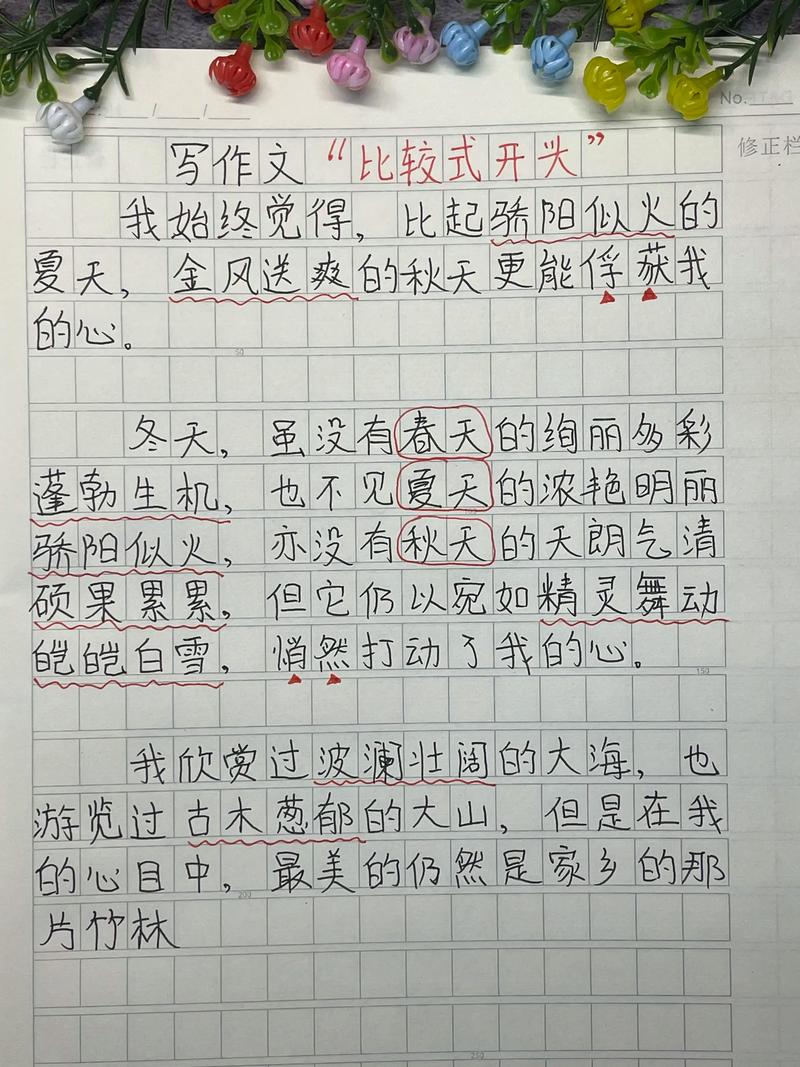 No.
修正栏
写作文“比较式开头”
我始终觉得，比起骄阳似火的
夏天，金风送爽的秋天更能俘获我
的心。
50
冬天，虽没有春天的绚丽多彩
蓬勃生机，也不见夏天的浓艳明丽
骄阳似火，亦没有秋天的天朗气清
硕果累累，但它仍以宛如精灵舞动
皑皑白雪，悄然打动了我的心。
150
我欣赏过波澜壮阔的大海，也
游览过古木葱郁的大山，但是在我
的心目中，最美的仍然是家乡的那
200
片竹林
250